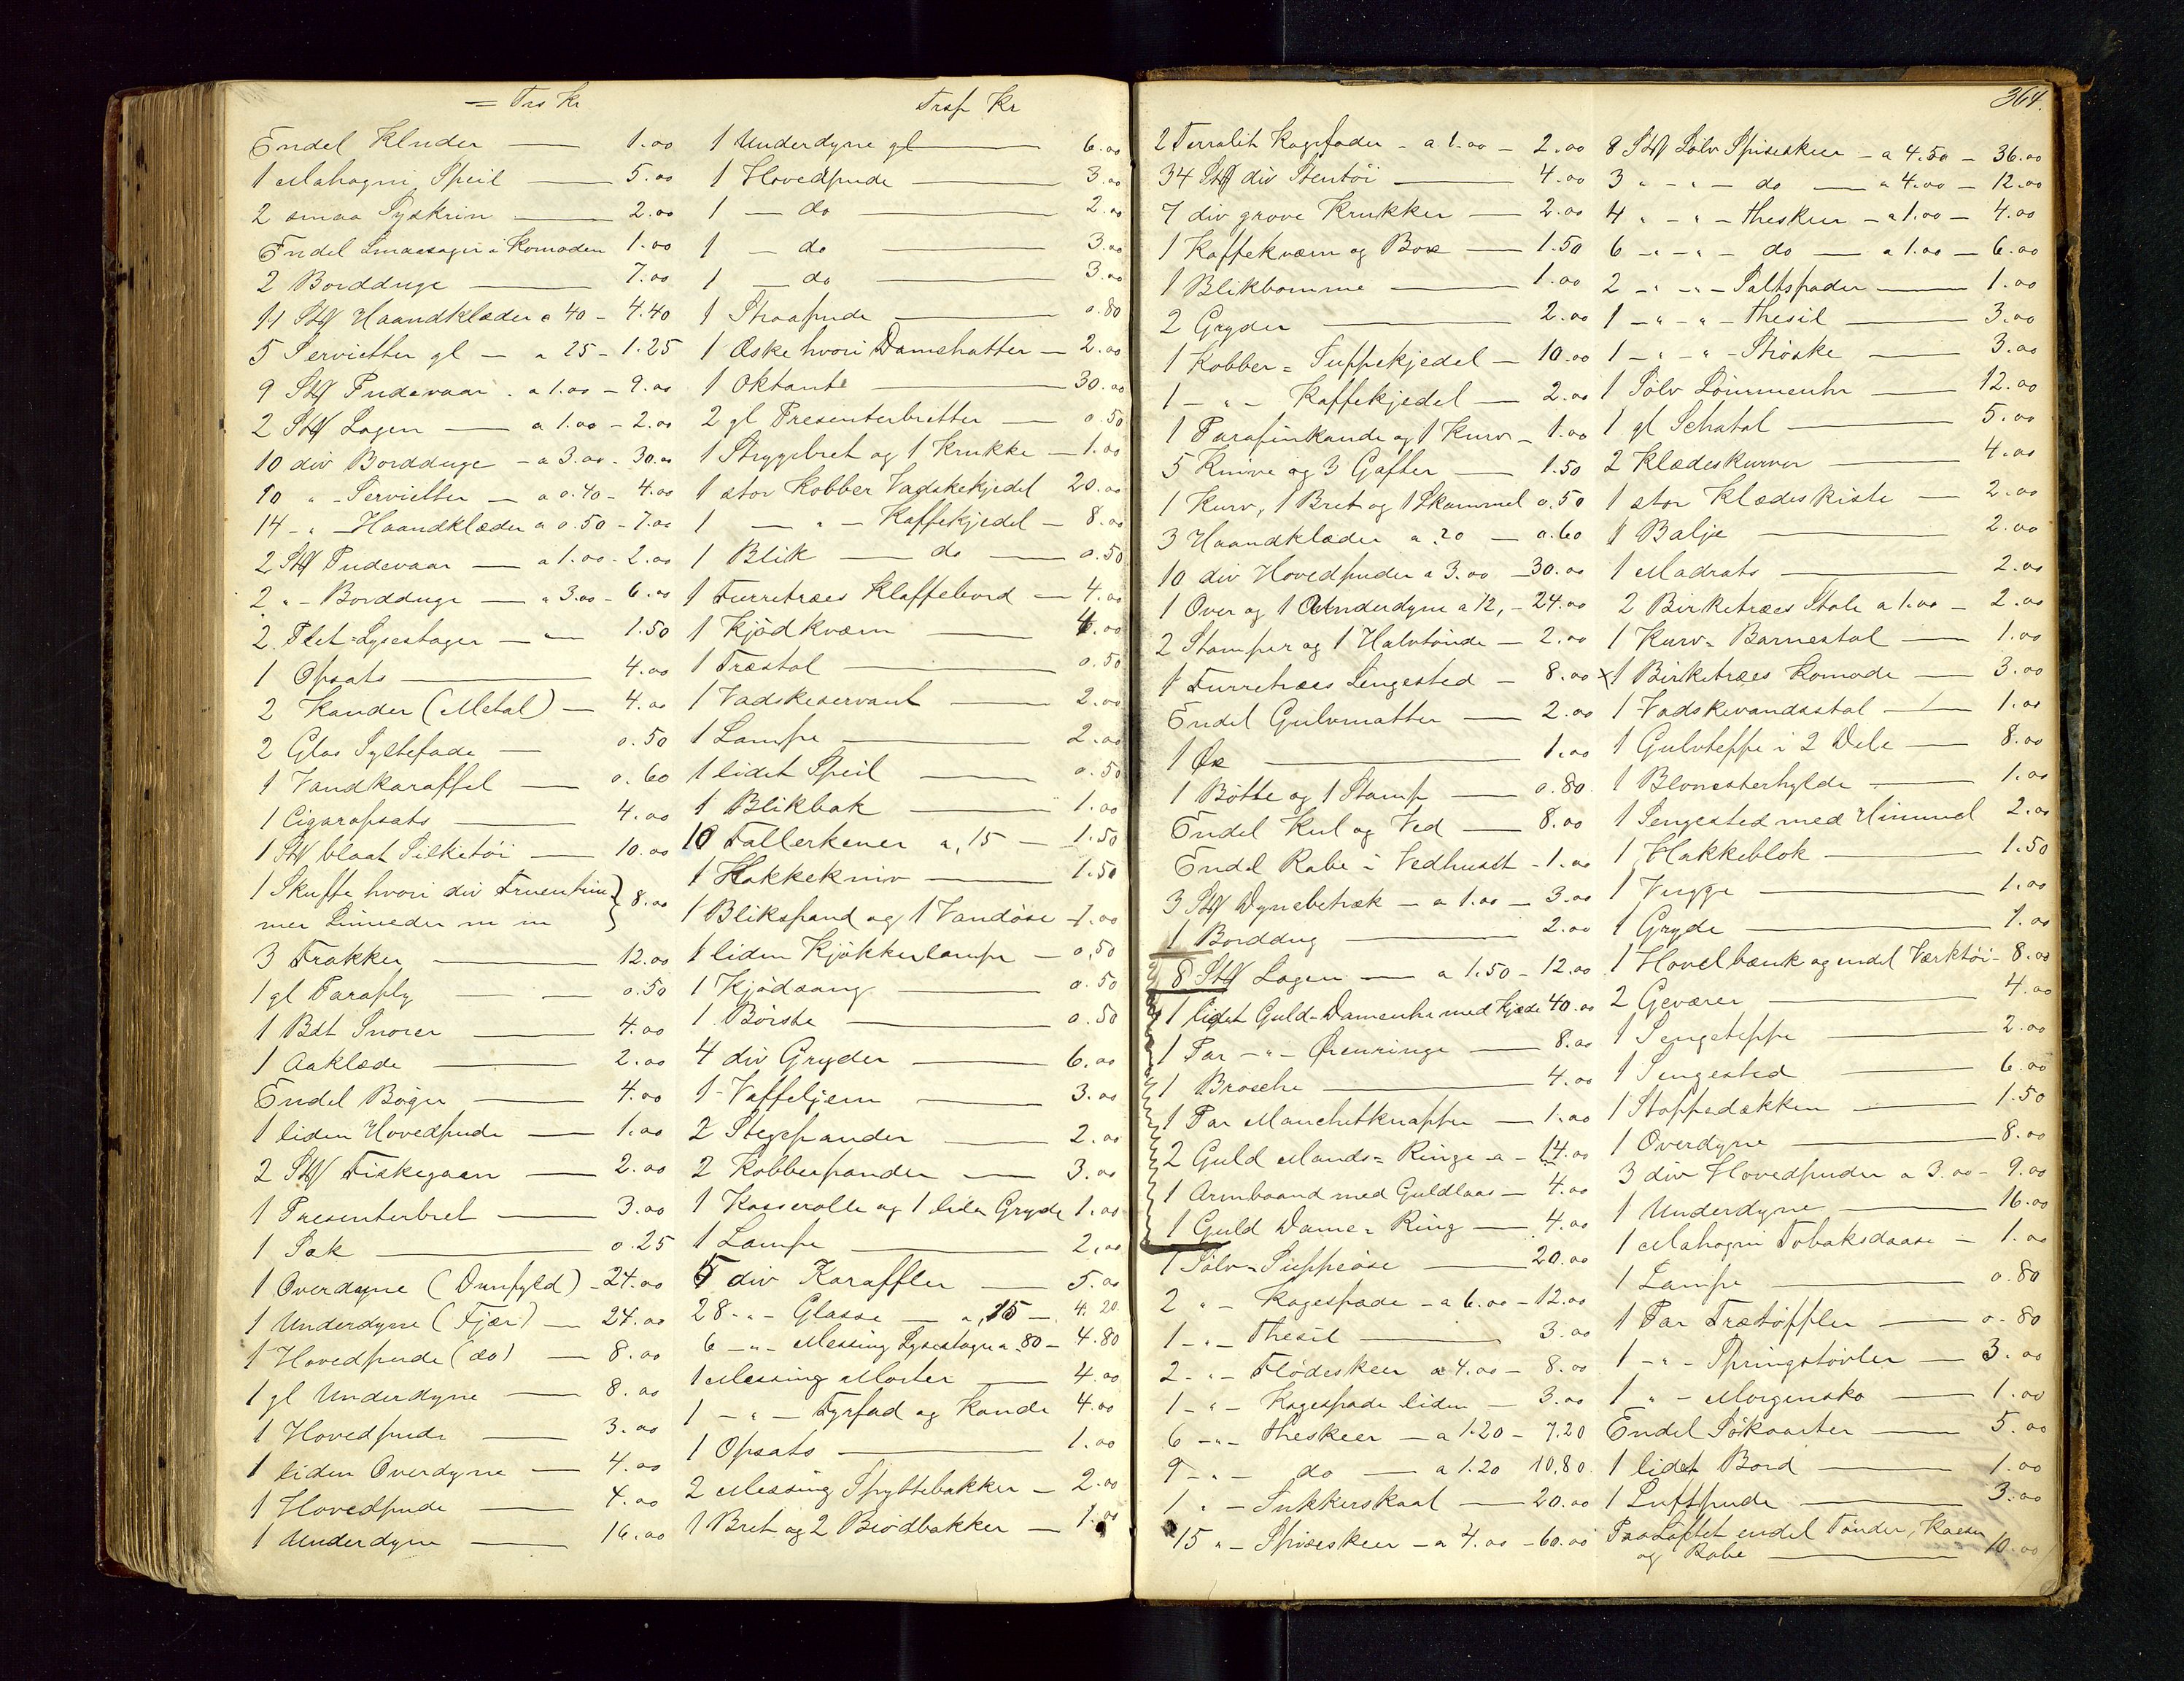 = Trs Kr
Endel Kluder — 1.00
1 Mahogni Speil — 5.00
2 smaa Syskrin — 2.00
Endel Smaasager i Komoden 1.00
2 Bordduge — 7.00
11 Stk Haandklæder a 40 - 4.40
5 Servietter gl — a 25 - 1.25
9 Stk Pudevaar . a 1.00 - 9.00
2 Stk Lagen — a 1.00 - 2.00
10 div Bordduge - a 3.00 - 30.00
10 " - Servietter — a 0.40 - 4.00
14 - " - Haandklæder a 0.50 - 7.00
2 Stk Pudevaar — a 1.00 - 2.00
2 " - Bordduge — a 3.00 - 6.00
2 Plet=Lysestager — 1.50
1 Opsats — 4.00
2 Kander (Metal) — 4.00
2 Glas Syltefade — 0.50
1 Vandkaraffel — 0.60
1 Cigaropsats — 4.00
1 Stk blaat Silketöi — 10.00
1 Skuffe hvori div Fruentim
mer Linneder m m } 8.00
3 Frakker — 12.00
1 gl Paraply — 0.50
1 Bdt Snorer — 4.00
1 Aaklæde — 2.00
Endel Böger — 4.00
1 liden Hovedpude — 1.00
2 Stk Fiskegarn — 2.00
1 Presenterbret — 3.00
1 Sæk — 0.25
1 Overdyne (Dunfyld) - 24.00
1 Underdyne (Fjær) — 24.00
1 Hovedpude (do) — 8.00
1 gl Underdyne — 8.00
1 Hovedpude — 3.00
1 liden Overdyne — 4.00
1 Hovedpude — 4.00
1 Underdyne — 16.00
Trsp Kr
1 Underdyne gl — 6.00
1 Hovedpude — 3.00
1 — do — 2.00
1 — do — 3.00
1 — do — 3.00
1 Straapude — 0.80
1 Æske hvori Damehatter — 2.00
1 Oktante — 30.00
2 gl Presenterbretter — 0.50
1 Strygebret og 1 Krukke — 1.00
1 stor Kobber Vadskekjedel 20.00
1 — " — Kaffekjedel — 8.00
1 Blik — do — 0.50
1 Furretræes Klaffebord — 4.00
1 Kjödkværn — 4.00
1 Træstol — 0.50
1 Vadskeservant — 2.00
1 Lampe — 2.00
1 lidet Speil — 0.50
1 Blikbak — 1.00
10 Tallerkener a ,15 — 1.50
1 Hakkekniv — 1.50
1 Blikspand og 1 Vandöse - 1.00
1 liden Kjökkenlampe — 0,50
1 Kjödsaug — 0.50
1 Börste — 0.50
4 div Gryder — 6.00
1 Vaffeljern — 3.00
2 Stegepander — 2.00
2 Kobberpander — 3.00
1 Kasserolle og 1 liden Gryde 1.00
1 Lampe — 2,00
5 div Karaffler — 5.00
28 - " - Glasse — a ,15 — 4.20
6 - " - Messing Lysestager a .80 - 4.80
1 Messing Morter — 4.00
1 - " - Fyrfad og Kande 4.00
1 Opsats — 1.00
2 Messing Spyttebakker — 2.00
1 Bret og 2 Brödbakker — 1.00
364.
2 Terralit Kagefader - a 1.00 - 2.00
34 Stk div Stentöi — 4.00
7 div grove Krukker — 2.00
1 Kaffekværn og Box — 1.50
1 Blikbomme — 1.00
2 Gryder — 2.00
1 Kobber = Suppekjedel — 10.00
1 - " - Kaffekjedel — 2.00
1 Parafinkande og 1 Kurv - 1.00
5 Knive og 3 Gafler — 1.50
1 Kurv, 1 Bret og 1 Skammel 0.50
3 Haandklæder a .20 — 0.60
10 div Hovedpuder a 3.00 - 30.00
1 Over og 1 Underdyne a 12, - 24.00
2 Stamper og 1 Halvtönde — 2.00
1 Furretræes Sengested — 8.00
Endel Gulvmatter — 2.00
1 Öx — 1.00
1 Bötte og 1 Stamp — 0.80
Endel Kul og Ved — 8.00
Endel Rabe i Vedhuset - 1.00
3 Stk Dynebetræk — a 1.00 — 3.00
1 Borddug — 2.00
8 Stk Lagen — a 1.50 - 12.00
1 lidet Guld=Dameuhr med Kjæde 40.00
1 Par - " - Ørenringe — 8.00
1 Brosche — 4.00
1 Par Manchetknapper — 1.00
2 Guld Mands= Ringe a - 14.00
1 Armbaand med Guldlaas — 4.00
1 Guld Dame= Ring — 4.00
1 Sölv=Suppeöse — 20.00
2 " - Kagespade - a 6.00 - 12.00
1 - " - Thesil — 3.00
2 - " - Flödeskeer a 4.00 — 8.00
1 - " - Kagespade liden — 3.00
6 - " - Theskeer — a 1.20 - 7.20
9 - " - do — a 1.20 10.80
1 " - Sukkerskaal — 20.00
15 " - Spiseskeer — a 4.00 - 60.00
8 Stk Sölv Spiseskeer - a 4.50 - 36.00
3 " - " - do — a 4.00 - 12.00
4 " - " - Theskeer - a 1.00 - 4.00
6 - " - " - do — a 1.00 - 6.00
2 - " - " - Saltspader — 1.00
1 - " - " - Thesil — 3.00
1 - " - " - Ströske — 3.00
1 Sölv Lommeuhr — 12.00
1 gl Schatol — 5.00
2 Klædeskurver — 4.00
1 stor Klædeskiste — 2.00
1 Balje — 2.00
1 Madrats — 2.00
2 Birketræes Stole a 1.00 — 2.00
1 Kurv= Barnestol — 1.00
x 1 Birketræes Komode — 3.00
1 Vadskevandsstol — 1.00
1 Gulvteppe i 2 Dele — 8.00
1 Blomsterhylde — 1.00
1 Sengested med Himmel 2.00
1 Hakkeblok — 1.50
1 Vugge — 1.00
1 Gryde — 1.00
1 Hövelbænk og endel Værktöi - 8.00
2 Geværer — 4.00
1 Sengeteppe — 2.00
1 Sengested — 6.00
1 Stoppedækken — 1.50
1 Overdyne — 8.00
3 div Hovedpuder a 3.00 - 9.00
1 Underdyne — 16.00
1 Mahogni Tobaksdaase — 1.00
1 Lampe — 0.80
1 Par Trætöffler — 0.80
1 - " - Springstövler — 3.00
1 " - Morgensko — 1.00
Endel Sökaarter — 5.00
1 lidet Bord — 1.00
1 Luftpude — 3.00
Paa Loftet endel Tönder, Kasser
og Rabe — 10.00